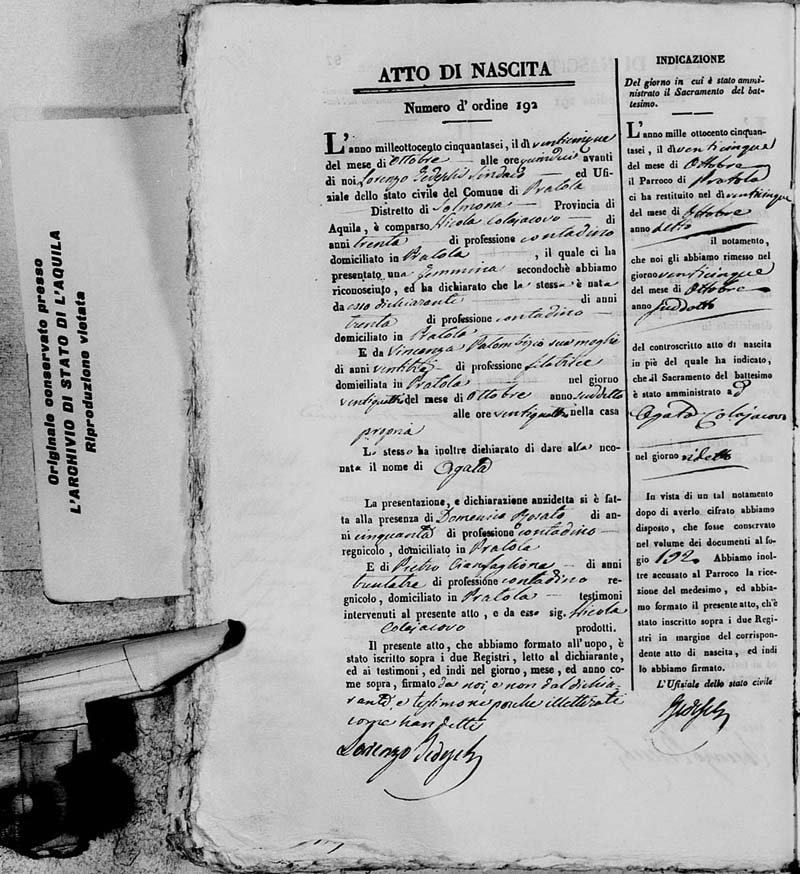 Originale conservato presso
L'ARCHIVIO DI STATO DI L'AQUILA
Riproduzione vietata
ATTO DI NASCITA
Numero d'ordine 192
L'anno milleottocento cinquantasei, il dì venticinque
del mese di Ottobre alle ore quindici avanti
di noi Lorenzo Sindaco ed Ufi-
ziale dello stato civile del Comune di Pratola
Distretto di Solmona Provincia di
Aquila, è comparso Nicola Colajacovo di
anni trenta di professione contadino
domiciliato in Pratola, il quale ci ha
presentato una femmina secondochè abbiamo
riconosciuto, ed ha dichiarato che la stessa è nata
da esso dichiarante di anni
trenta di professione contadino
domiciliato in Pratola
E da Vincenza Palombizio sua moglie
di anni ventitre di professione filatrice
domiciliata in Pratola nel giorno
ventiquattro del mese di Ottobre anno suddetto
alle ore ventiquattro nella casa
propria
Lo stesso ha inoltre dichiarato di dare alla neo-
nata il nome di Agata
La presentazione, e dichiarazione anzidetta si è fat-
ta alla presenza di Domenico Rosato di an-
ni cinquanta di professione contadino
regnicolo, domiciliato in Pratola
E di Pietro di anni
trentatre di professione contadino re-
gnicolo, domiciliato in Pratola testimoni
intervenuti al presente atto, e da esso sig. Nicola
Colajacovo prodotti.
Il presente atto, che abbiamo formato all'uopo, è
stato iscritto sopra i due Registri, letto al dichiarante,
ed ai testimoni, ed indi nel giorno, mese, ed anno co-
me sopra, firmato da noi, e non dal dichia-
rante, e testimone perche illetterati
come han detto
Lorenzo
INDICAZIONE
Del giorno in cui è stato ammi-
nistrato il Sacramento del bat-
tesimo.
L'anno mille ottocento cinquan-
tasei, il dì venticinque
del mese di Ottobre
il Parroco di Pratola
ci ha restituito nel dì venticinque
del mese di Ottobre
anno detto
il notamento,
che noi gli abbiamo rimesso nel
giorno venticinque
del mese di Ottobre
anno suddetto
del controscritto atto di nascita
in piè del quale ha indicato,
che il Sacramento del battesimo
è stato amministrato ad
Agata Colajacovo
nel giorno ridetto
In vista di un tal notamento
dopo di averlo cifrato abbiamo
disposto, che fosse conservato
nel volume dei documenti al fo-
gio 192. Abbiamo inol-
tre accusato al Parroco la rice-
zione del medesimo, ed abbia-
mo formato il presente atto, ch'è
stato inscritto sopra i due Regi-
stri in margine del corrispon-
dente atto di nascita, ed indi
lo abbiamo firmato.
L'Ufiziale dello stato civile